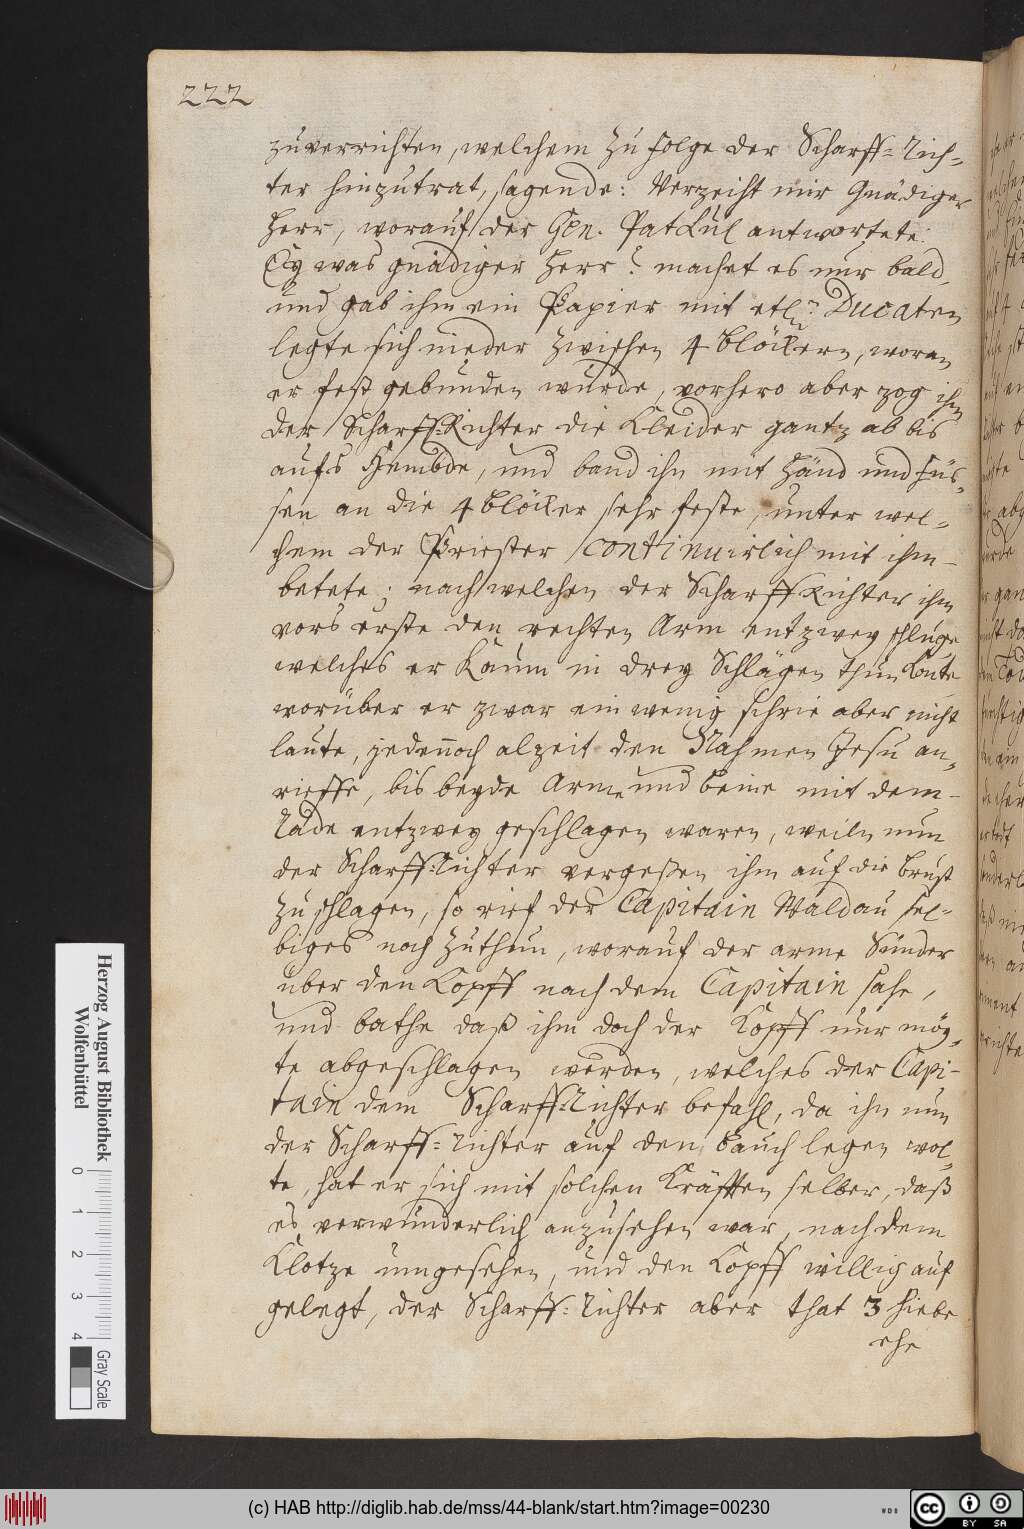 222
zuverrichten, welchem zu folge der Scharff-Rich-
ter hinzutrat, sagende: Verzeiht mir Gnädiger
Herr, worauf der Gen. Patkul antwortete:
Ey was gnädiger Herr? machet es nur bald,
und gab ihm ein Papier mit etl. Ducaten
legte sich nieder zwischen 4 Blöckern, woran
er fest gebunden wurde, vorhero aber zog ihm
der Scharff-Richter die Kleider gantz ab bis
aufs Hembde, und band ihn mit Händ und Füs-
sen an die 4 Blöcker sehr feste, unter wel-
chem der Priester continuirlich mit ihm
betete; nach welchen der Scharff Richter ihm
vors erste den rechten Arm entzwey schluge
welches er kaum in drey Schlägen thun konte
worüber er zwar ein wenig schrie aber nicht
laute, jedennoch alzeit den Nahmen Jesu an-
rieffe, bis beyde Arme und Beine mit dem
Rade entzwey geschlagen waren, weiln nun
der Scharff-Richter vergeßen ihm auf die Brust
zu schlagen, so rief der Capitain Waldau sel-
biges noch zuthun, worauf der arme Sünder
über den Kopff nach dem Capitain sahe,
und bathe daß ihm doch der Kopff nur mög-
te abgeschlagen werden, welches der Capi-
tain dem Scharff-Richter befahl, da ihn nun
der Scharff-Richter auf den Bauch legen wol-
te, hat er sich mit solchen Kräfften selber, daß
es verwunderlich anzusehen war, nach dem
Klotze umgesehen, und den Kopff willig auf
gelegt, der Scharff-Richter aber that 3 Hiebe
ehe
Herzog August Bibliothek
Wolfenbüttel
0 1 2 3 4
Gray Scale
(c) HAB http://diglib.hab.de/mss/44-blank/start.htm?image=00230
WDB
cc BY SA